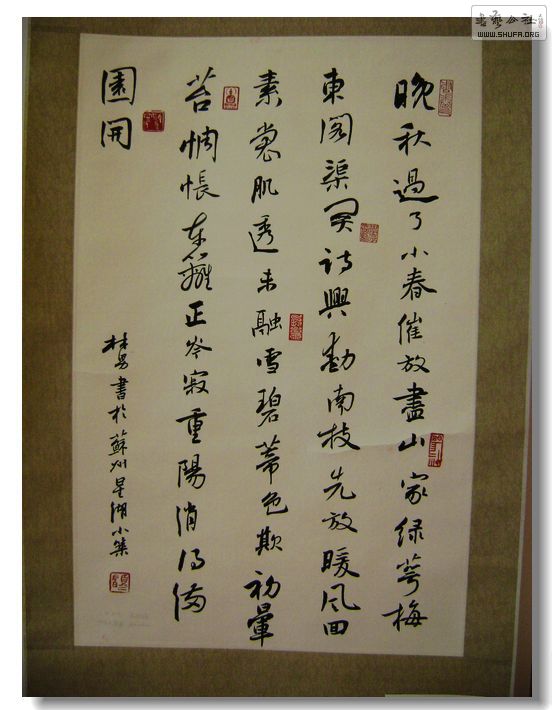 書藝公社
WWW.SHUFA.ORG
晚秋過了小春催放盡山家綠萼梅
東閣渠詩興動南枝先放暖風回
素裳肌透未融雪碧蒂色欺初暈
苔惆悵東籬正岑寂重陽消得滿
園開
林書於蘇州星湖小築